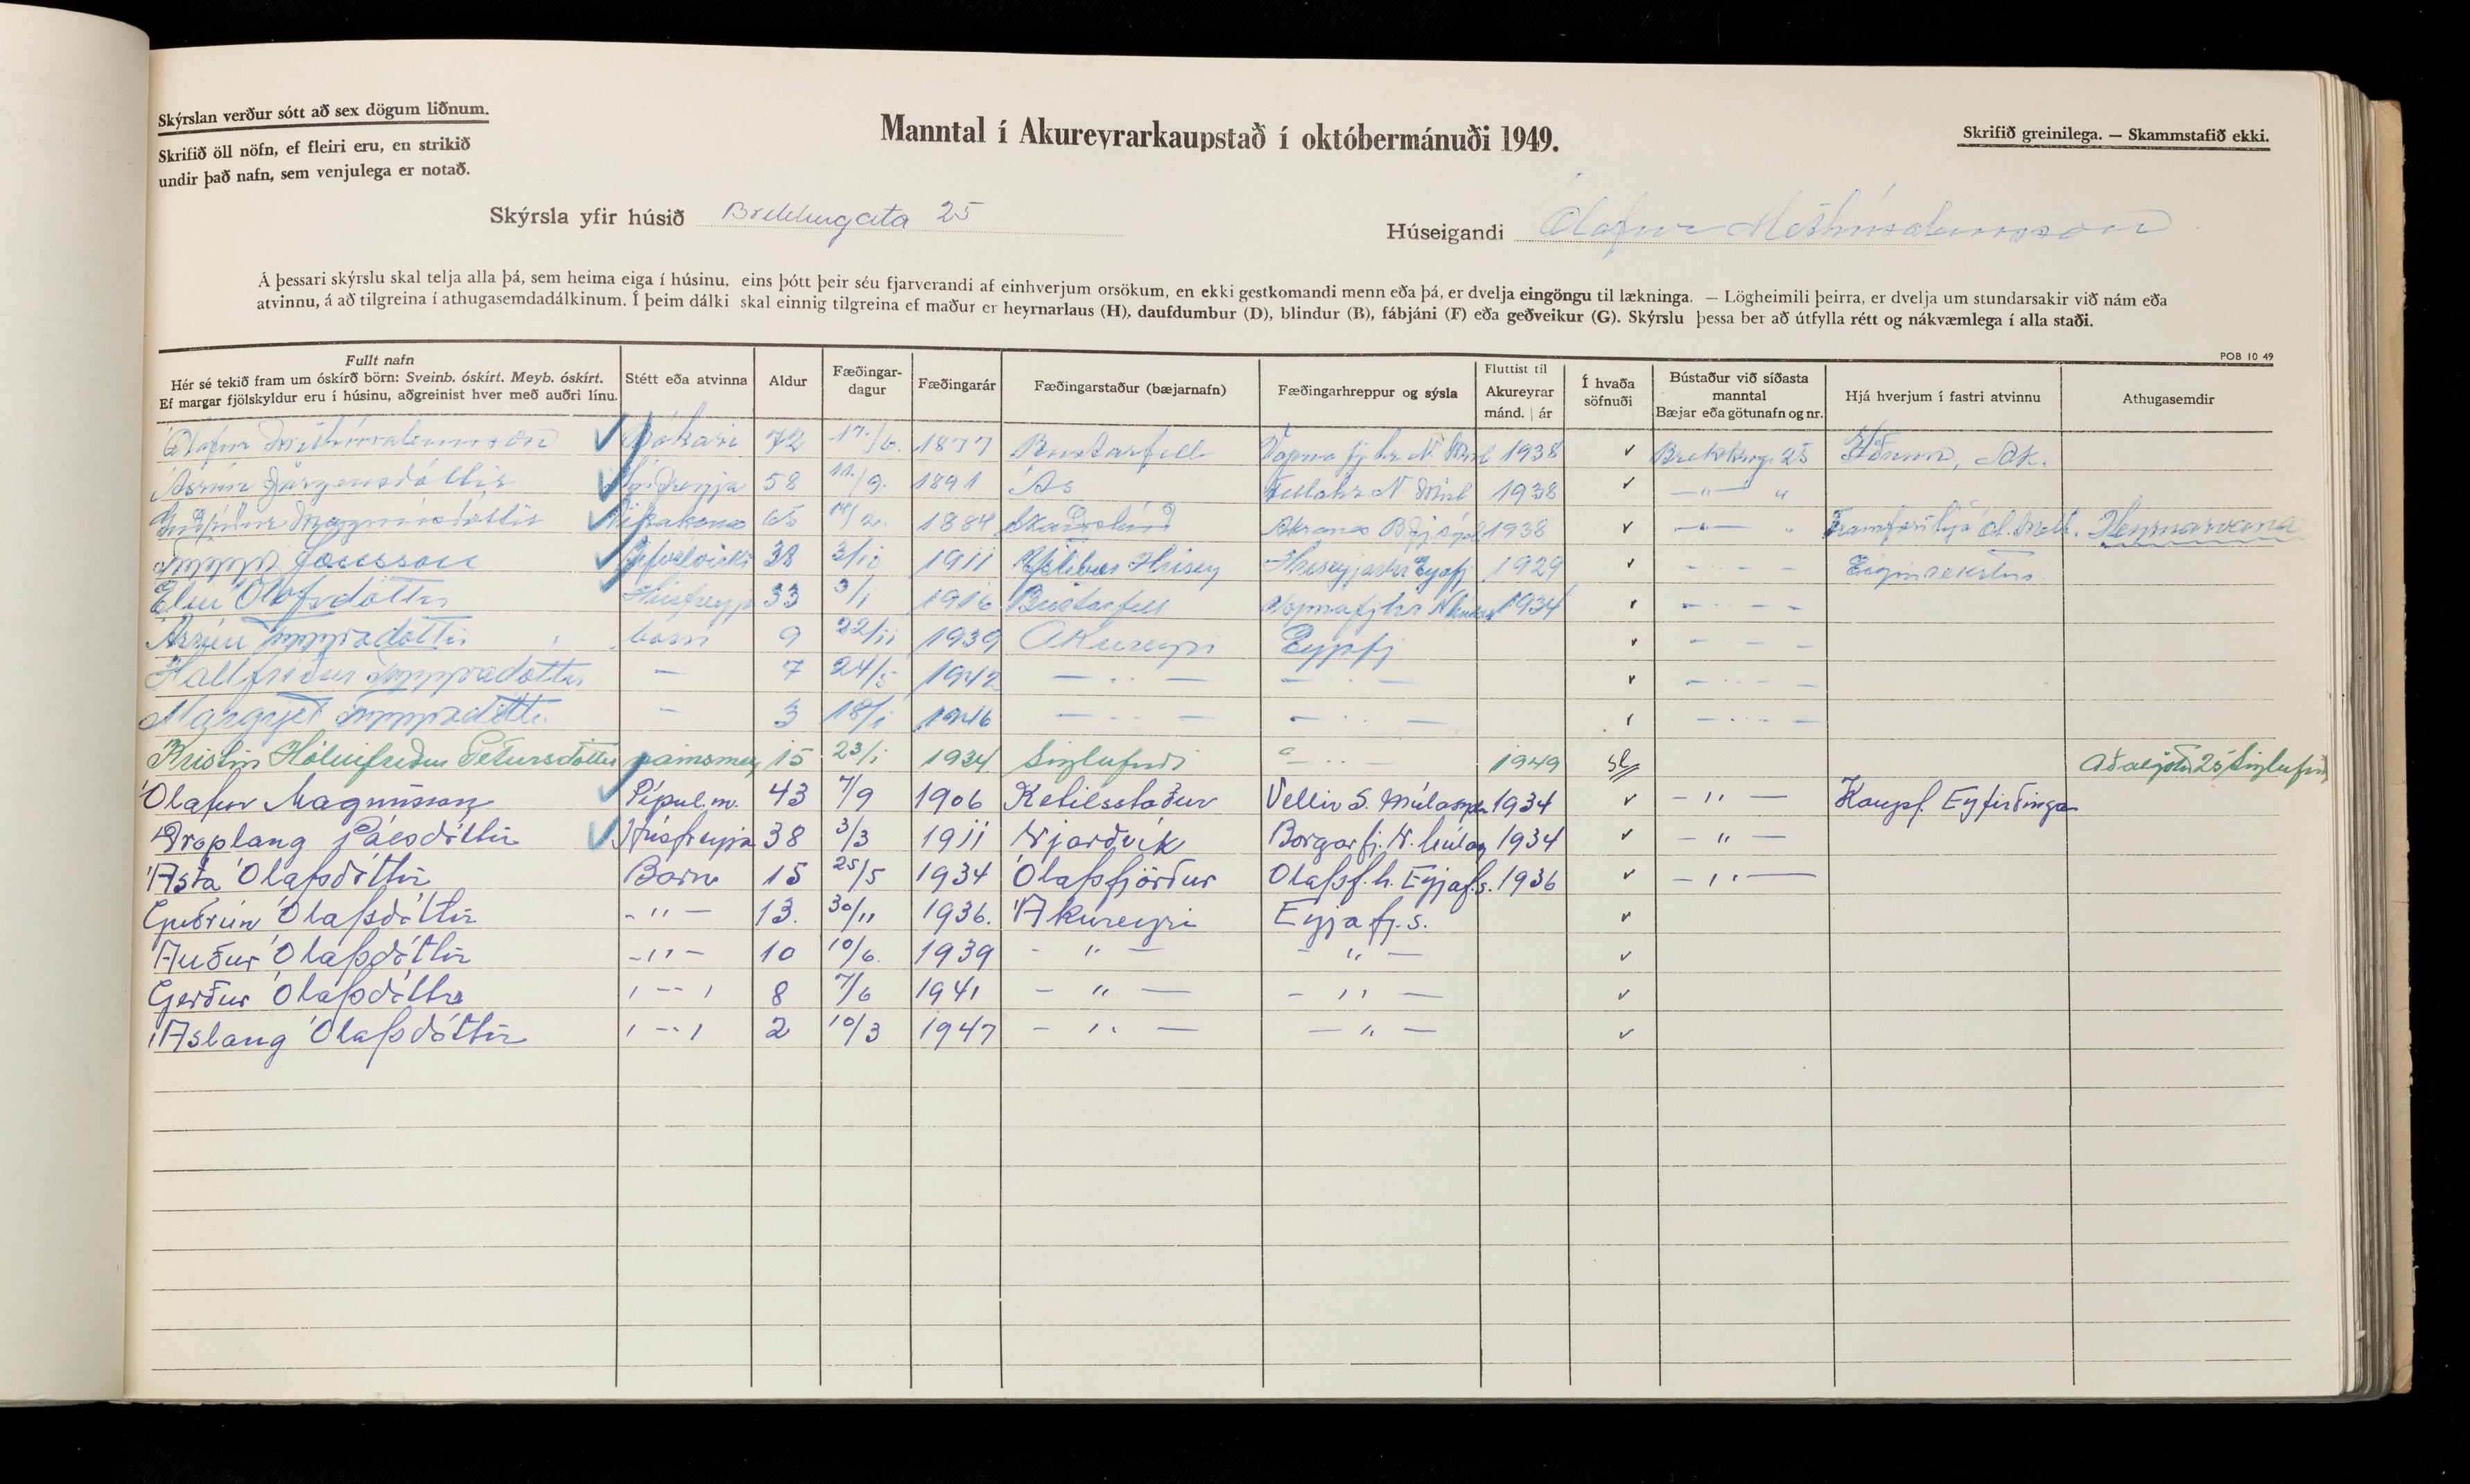 Skýrslan verður sótt að sex dögum liðnum.
Skrifið öll nöfn, ef fleiri eru, en strikið
undir það nafn, sem venjulega er notað.
Manntal í Akureyrarkaupstað í októbermánuði 1949.
Skrifið greinilega. — Skammstafið ekki.
Skýrsla yfir húsið Brekkugata 25
Húseigandi Ólafur Methúsalemsson
Á þessari skýrslu skal telja alla þá, sem heima eiga í húsinu, eins þótt þeir séu fjarverandi af einhverjum orsökum, en ekki gestkomandi menn eða þá, er dvelja eingöngu til lækninga. — Lögheimili þeirra, er dvelja um stundarsakir við nám eða
atvinnu, á að tilgreina í athugasemdadálkinum. Í þeim dálki skal einnig tilgreina ef maður er heyrnarlaus (H), daufdumbur (D), blindur (B), fábjáni (F) eða geðveikur (G). Skýrslu þessa ber að útfylla rétt og nákvæmlega í alla staði.
POB 10 49
Fullt nafn
Hér sé tekið fram um óskírð börn: Sveinb. óskírt. Meyb. óskírt.
Ef margar fjölskyldur eru í húsinu, aðgreinist hver með auðri línu.
Stétt eða atvinna
Aldur
Fæðingar-
dagur
Fæðingarár
Fæðingarstaður (bæjarnafn)
Fæðingarhreppur og sýsla
Fluttist til
Akureyrar
mánd. | ár
Í hvaða
söfnuði
Bústaður við síðasta
manntal
Bæjar eða götunafn og nr.
Hjá hverjum í fastri atvinnu
Athugasemdir
Ólafur Methúsalemsson Bókari 72 17/6. 1877 Bustarfell Vopnafj.hr. N. Múl 1938 Brekkug. 25 Iðunn, Ak.
Ásrún Jörgensdóttir Húsfreyja 58 11./9. 1891 Ás Fellahr. N. Múl 1938 — " — "
Magnúsdóttir 65 1884 Akranes 1938 — " — " Heyrnarvana
Jónsson 38 3/10 1911 Hrísey 1929 — " —
Elín Ólafsdóttir Húsfreyja 33 3/1 1916 Bustarfell Vopnafjhr N Múlas 1934 — " —
Ásrún barn 9 22/11 1939 Akureyri Eyjafj — " —
Hallfríður — 7 24/5 1942 — " — — " — — " —
Margrjet — 3 18/1 1946 — " — — " — — " —
Kristín Hólmfríður Pétursdóttir námsmey 15 23/1 1934 Siglufirði 1949 Aðalgötu 25 Siglufirði
Ólafur Magnússon Pípul.m. 43 7/9 1906 Ketilsstaður Vellir S. Múlasýsla 1934 — " — Kaupf. Eyfirðinga
Droplaug Pálsdóttir Húsfreyja 38 3/3 1911 Njarðvík Borgarfj. N. Múlas 1934 — " —
Ásta Ólafsdóttir Barn 15 25/5 1934 Ólafsfjörður Ólafsf.h. Eyjafj.s. 1936 — " —
Guðrún Ólafsdóttir — " — 13. 30/11 1936. Akureyri Eyjafj.s.
Auður Ólafsdóttir — " — 10 10/6. 1939 — " — — " —
Gerður Ólafsdóttir — " — 8 7/6 1941 — " — — " —
Áslaug Ólafsdóttir — " — 2 10/3 1947 — " — — " —